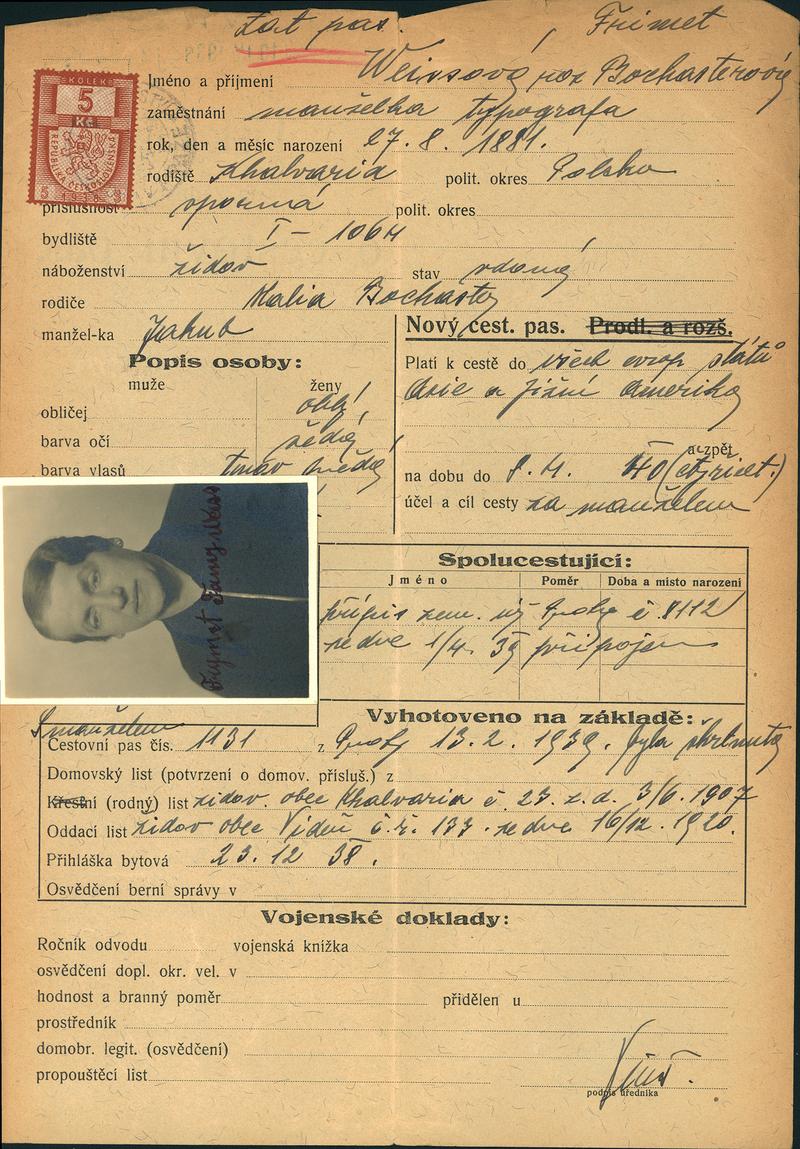 Zat. pas. Frimet
SKOLEK
5
Kč
REPUBLIKA ČESKOSLOVENSKÁ
5 1938
Jméno a příjmení Weissová roz Bochasterová
zaměstnání manželka typografa
rok, den a měsíc narození 27. 8. 1881.
rodiště Khalvaria polit. okres Polsko
příslušnost sporná polit. okres
bydliště I - 1064
náboženství židov stav vdaná
rodiče Malia Bochaster
manžel-ka Jakub
Nový cest. pas. Prodl. a rozš.
Popis osoby:
muže ženy
obličej obl.
barva očí šedá
barva vlasů tmav hnědá
Platí k cestě do všech evrop států
Asie a jižní Ameriky
a zpět
na dobu do 8. 4. 40 (čtyřicet.)
účel a cíl cesty za manželem
Frymet Fanny Weiss
Spolucestující:
Jméno Poměr Doba a místo narození
přípis zem. úř Prahy č 8112
ze dne 1/4. 39 připojen
Vyhotoveno na základě:
S manželem
Cestovní pas čís. 1131 z Prahy 13. 2. 1939. byla škrtnuta
Domovský list (potvrzení o domov. přísluš.) z
Křestní (rodný) list židov. obec Khalvaria č. 23. z. d. 3/6. 1907
Oddací list židov obec Vídeň č. ř. 133. ze dne 16/12. 1920.
Přihláška bytová 23. 12 38.
Osvědčení berní správy v
Vojenské doklady:
Ročník odvodu vojenská knížka
osvědčení dopl. okr. vel. v
hodnost a branný poměr přidělen u
prostředník
domobr. legit. (osvědčení)
propouštěcí list
podpis úředníka